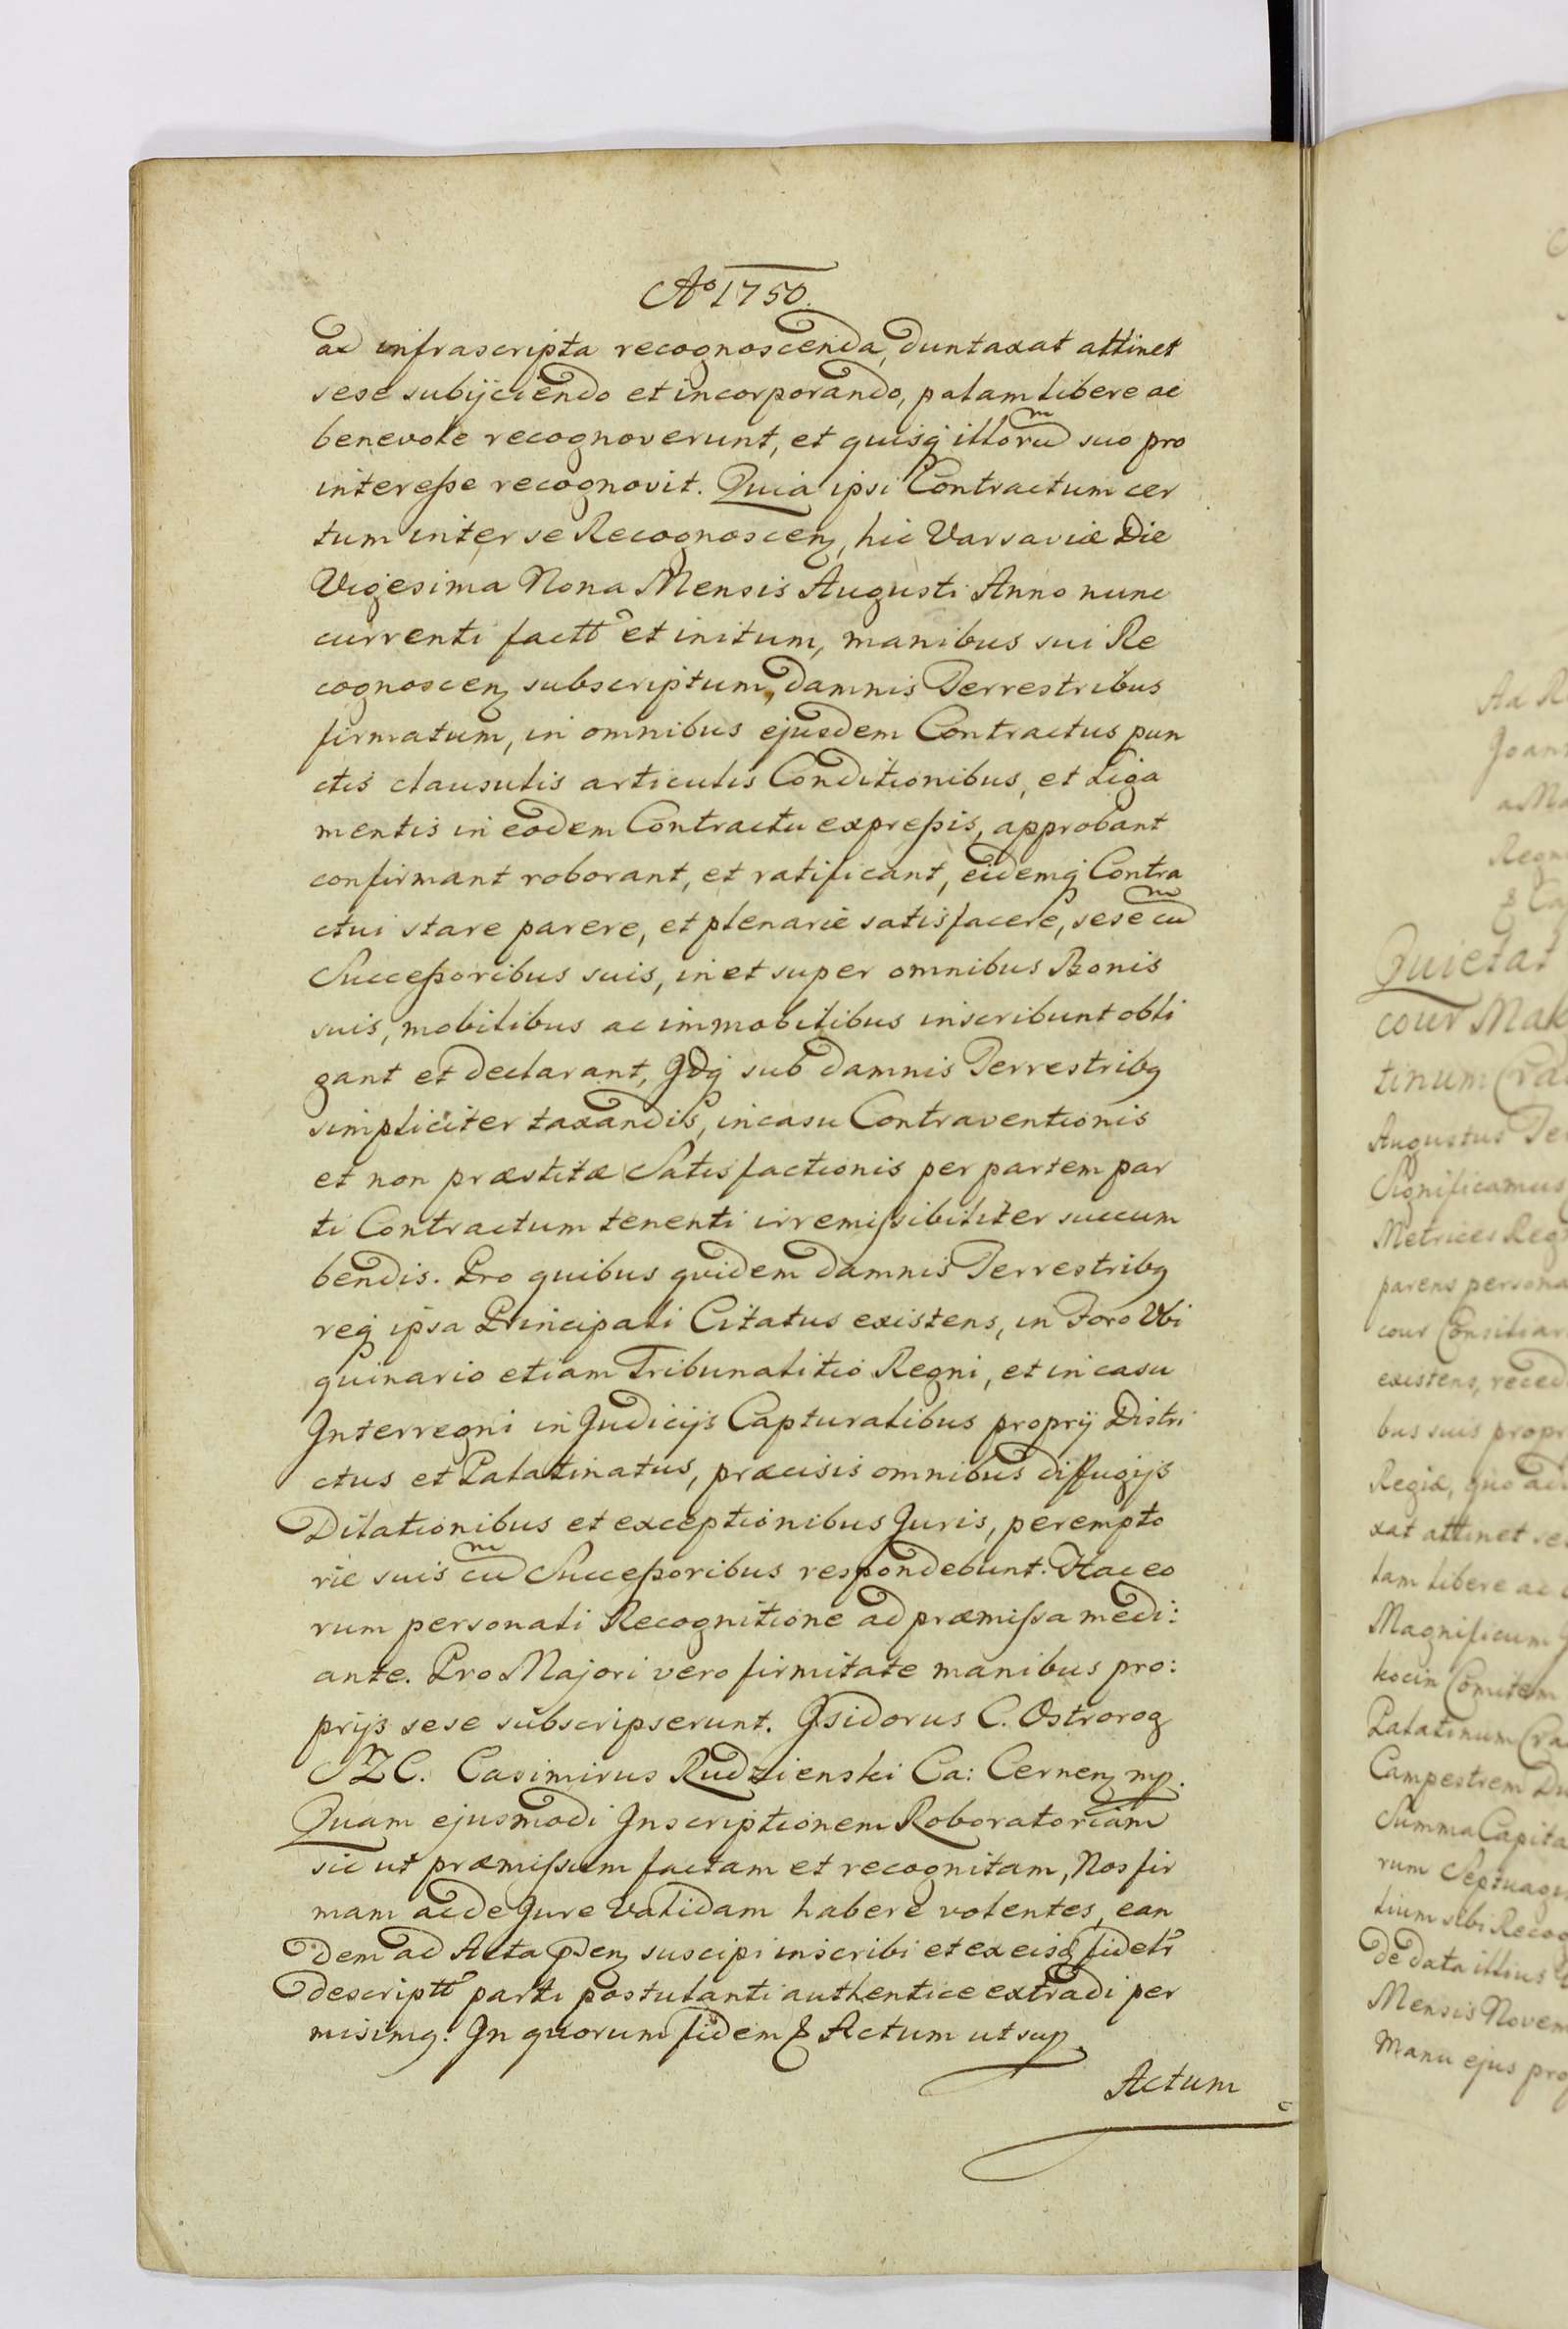 Aº 1750.
ad infrascripta recognoscenda, duntaxat attinet
sese subijciendo et incorporando, palam libere ac
benevole recognoverunt, et quisq illorũ suo pro
interesse recognovit. Quia ipsi Contractum cer
tum inter se Recognoscen, hic Varsaviæ Die
Vigesima Nona Mensis Augusti Anno nunc
currenti factt et initum, manibus sui Re
cognoscen subscriptum, damnis Terrestribus
firmatum, in omnibus ejusdem Contractus pun
ctis clausulis articulis Conditionibus, et Liga
mentis in eodem Contractu expressis, approbant
confirmant roborant, et ratificant, eidemq Contra
ctui stare parere, et plenarie satisfacere, sese cũ
Successoribus suis, in et super omnibus Bonis
suis, mobilibus ac immobilibus inscribunt obli
gant et declarant, Idq sub damnis Terrestribq
simpliciter taxandis, in casu Contraventionis
et non præstitæ Satisfactionis per partem par
ti Contractum tenenti irremissibiliter succum
bendis. Pro quibus quidem damnis Terrestribq
req ipsa Principali Citatus existens, in Foro Vbi
quinario etiam Tribunalitio Regni, et in casu
Interregni in Judicijs Capturalibus proprij Distri
ctus et Palatinatus, præcisis omnibus diffugijs
Dilationibus et exceptionibus Juris, perempto
rie suis cũ Successoribus respondebunt. Hac eo
rum personali Recognitione ad præmissa medi:
ante. Pro Majori vero firmitate manibus pro:
prijs sese subscripserunt. Isidorus C. Ostrorog
SZC. Casimirus Rudzienski Ca: Cernen mp.
Quam ejusmodi Inscriptionem Roboratoriam
sic ut præmissum factam et recognitam, Nos fir
mam ac de Jure Validam habere volentes, ean
dem ad Acta pden suscipi inscribi et ex eisd fidelr
descriptt parti postulanti authentice extradi per
misimq. In quorum fidem & Actum ut sup.
Actum
Quietat
cour Mak
tinum Cra
Augustus Te
Significamus
Metrices Reg
parens persona
cour Consiliar
existens, reced
bus suis propr
Regiæ, quo ad
xat attinet se
lam libere ac
Magnificum
kocin Comitem
Palatinum Cra
Campestrem Du
Summa Capita
rum Septuag
lium sibi Recog
de data illius
Mensis Novem
Manu ejus pro